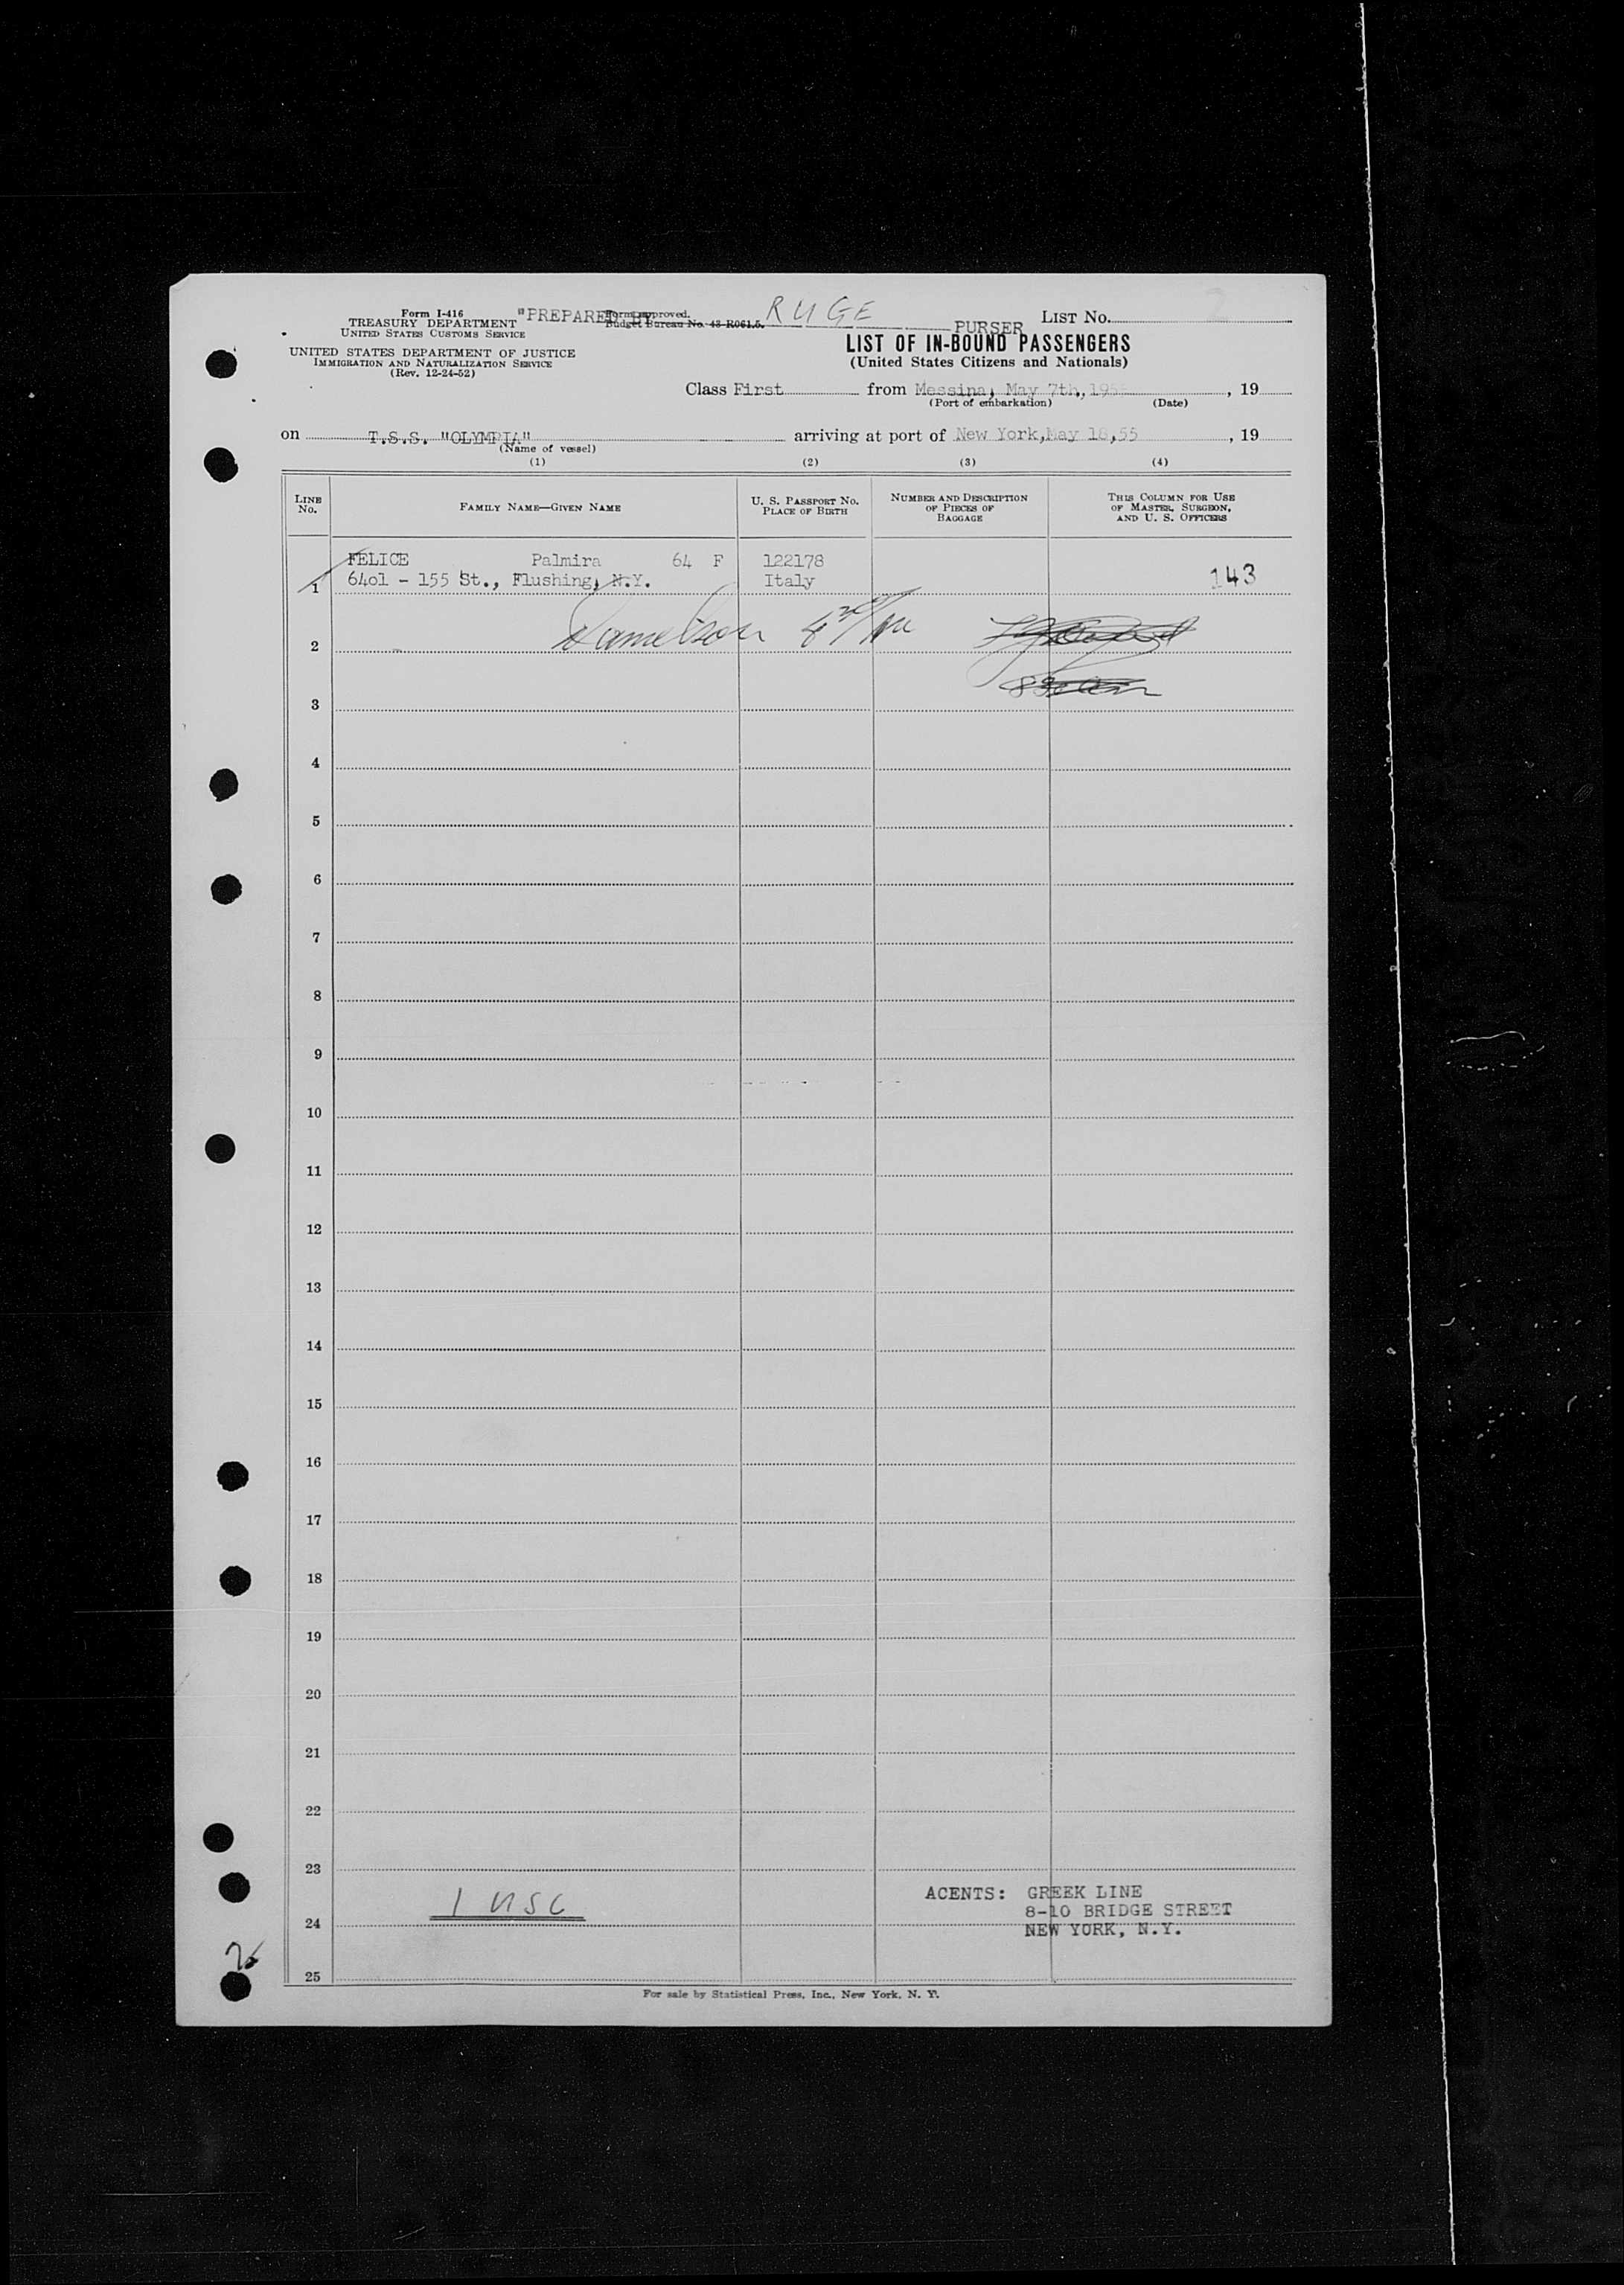 Form I-416
TREASURY DEPARTMENT
UNITED STATES CUSTOMS SERVICE
UNITED STATES DEPARTMENT OF JUSTICE
IMMIGRATION AND NATURALIZATION SERVICE
(Rev. 12-24-52)
"PREPARED BY RUGE PURSER
Form approved.
Budget Bureau No. 43-R061.5.
LIST No. 2
LIST OF IN-BOUND PASSENGERS
(United States Citizens and Nationals)
Class First from Messina, May 7th, 1955, 19
(Port of embarkation) (Date)
on T.S.S. "OLYMPIA" arriving at port of New York, May 18, 55, 19
(Name of vessel)
(1) (2) (3) (4)
LINE No. FAMILY NAME—GIVEN NAME U. S. PASSPORT NO. PLACE OF BIRTH NUMBER AND DESCRIPTION OF PIECES OF BAGGAGE THIS COLUMN FOR USE OF MASTER, SURGEON, AND U. S. OFFICERS
FELICE Palmira 64 F 122178
1 6401 - 155 St., Flushing, N.Y. Italy 143
2
3
4
5
6
7
8
9
10
11
12
13
14
15
16
17
18
19
20
21
22
23
1 USC
ACENTS: GREEK LINE
8-10 BRIDGE STREET
24 NEW YORK, N.Y.
25
For sale by Statistical Press, Inc., New York, N. Y.